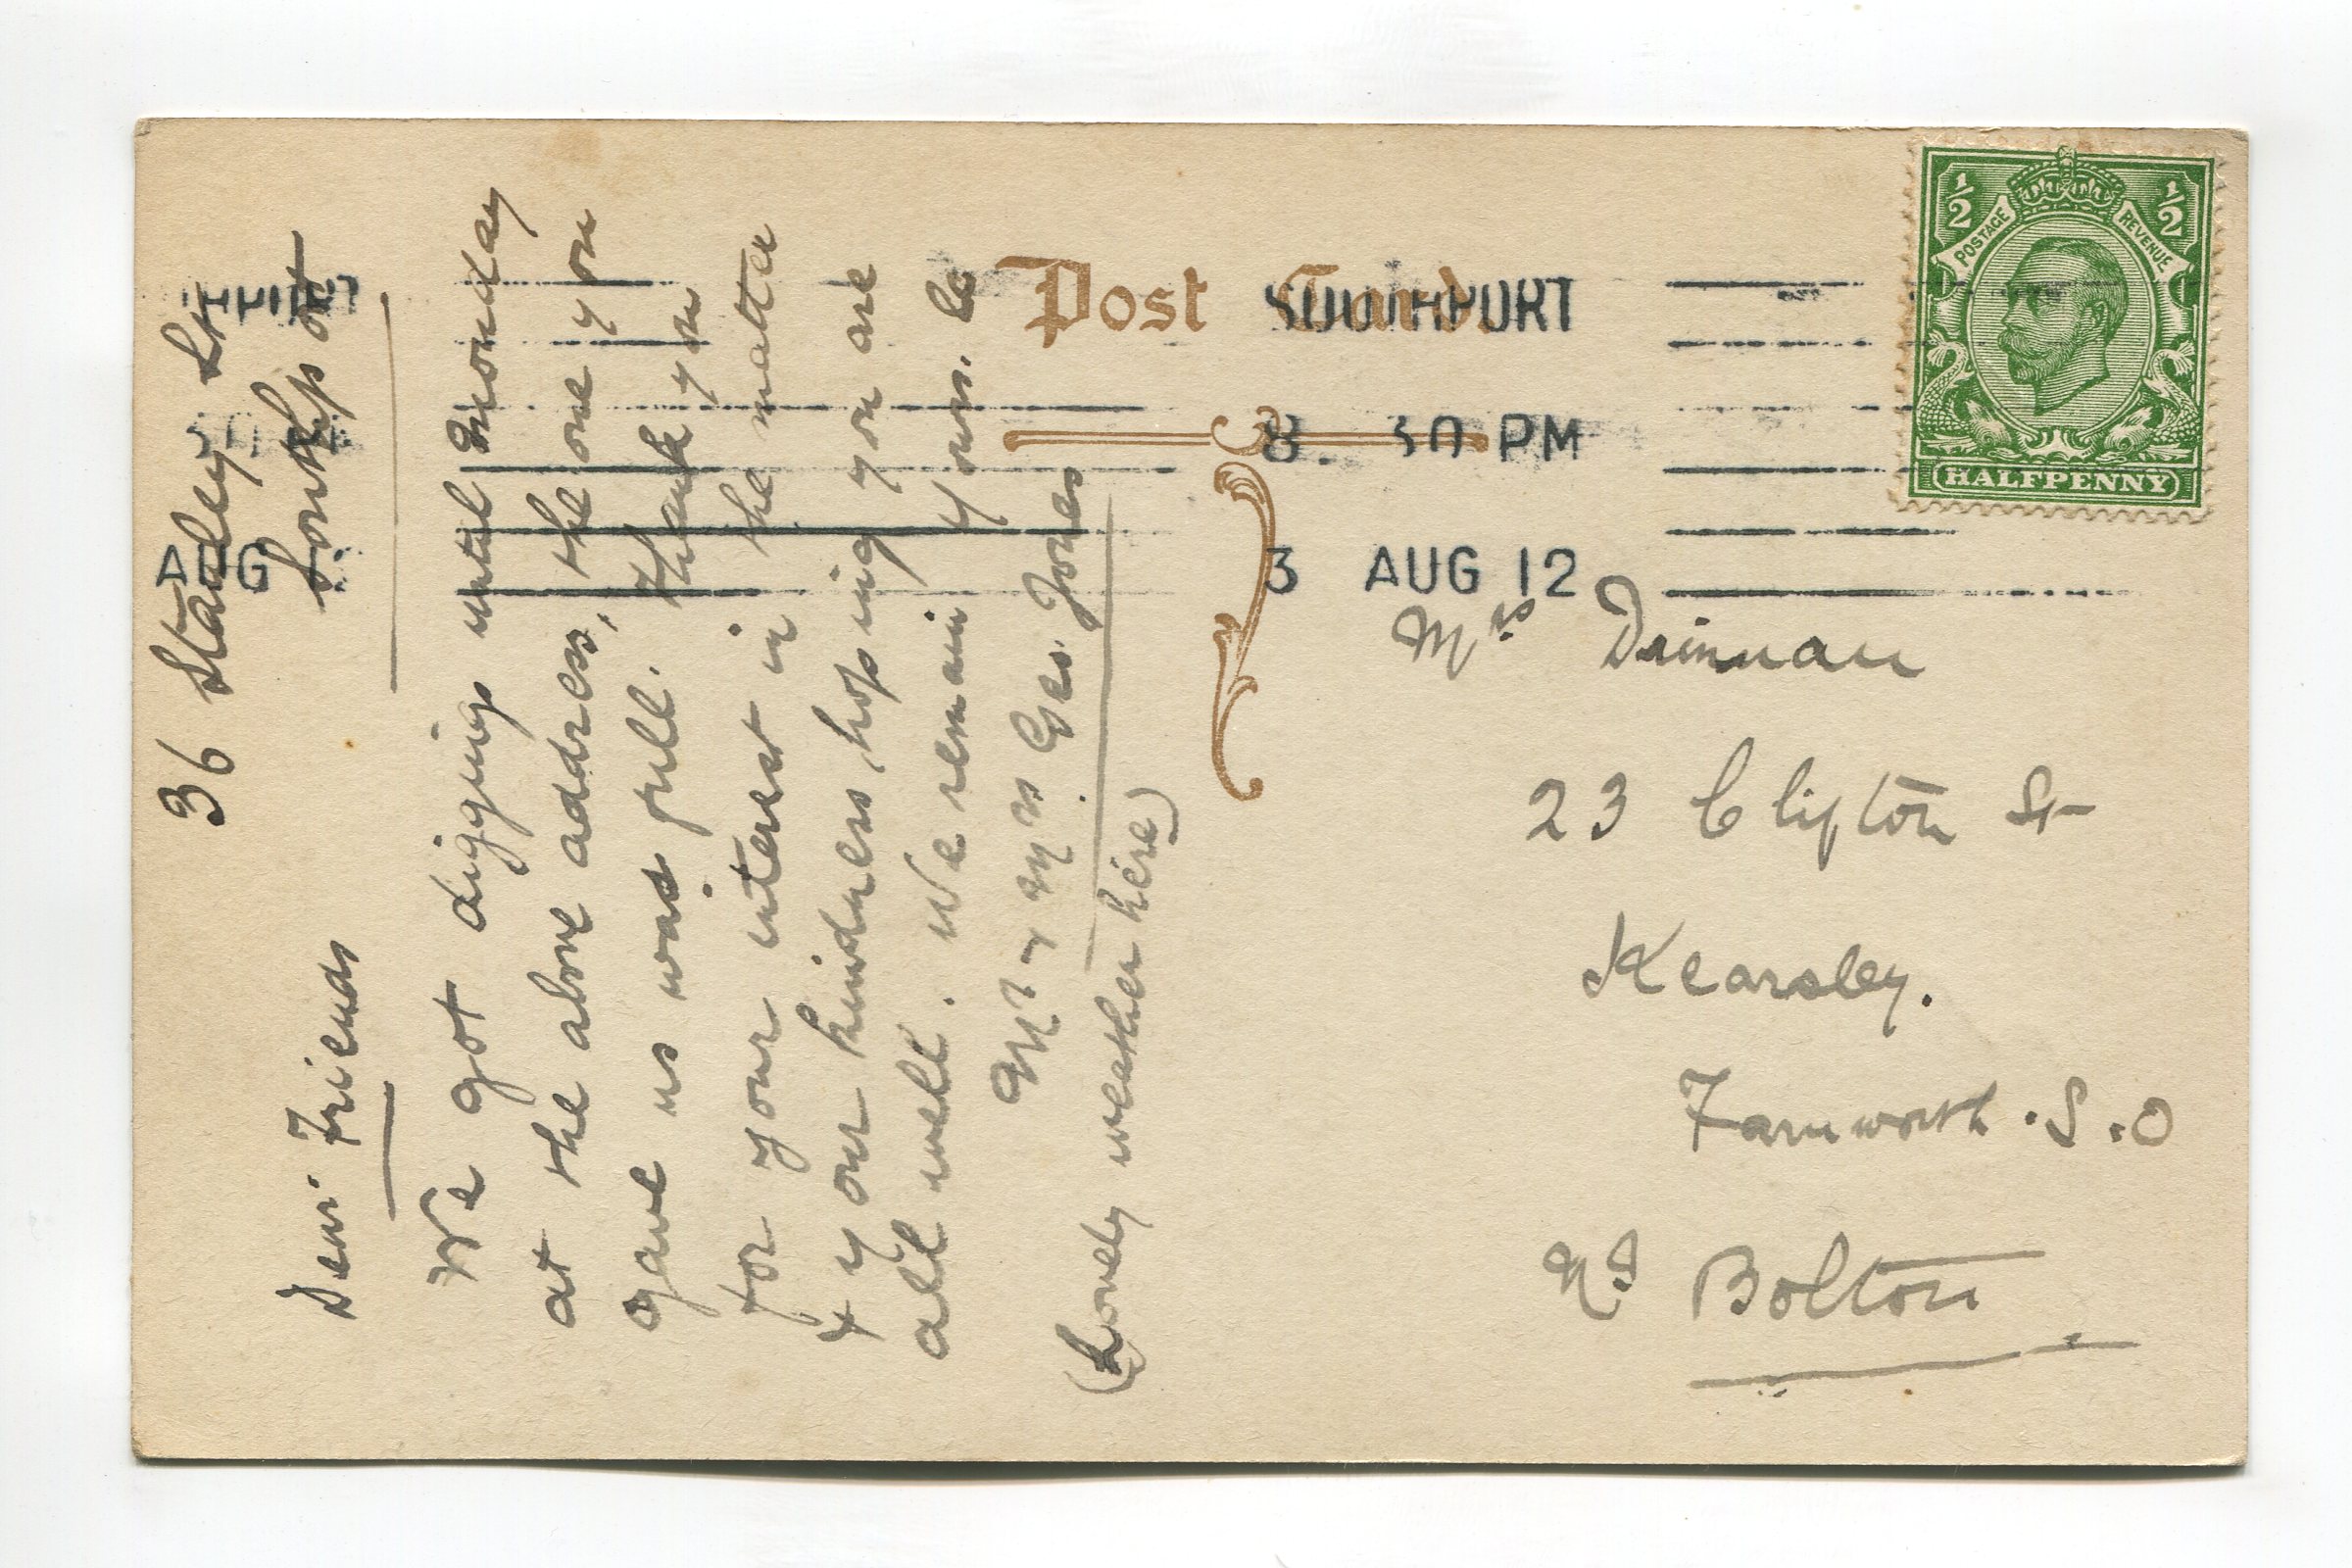 36 Stanley St
Southport
Dear Friends
We got diggings until Monday
at the above address, the one you
gave us was full. Thank you
for your interest in the matter
& your kindness hoping you are
all well. We remain yours. &c
Mr & Mrs Geo. Jones
(Lovely weather here)
Post Card.
SOUTHPORT
8. 30 PM
3 AUG 12
AUG
½ ½
POSTAGE REVENUE
HALFPENNY
Mrs Drinnan
23 Clifton St
Kearsley.
Farnworth. S.O
Nr Bolton